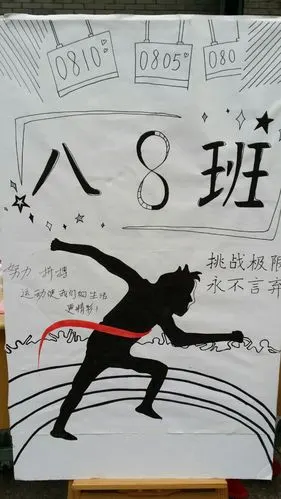 0810
0805
080
八8班
努力 拼搏
运动使我们的生活
更精彩!
挑战极限
永不言弃